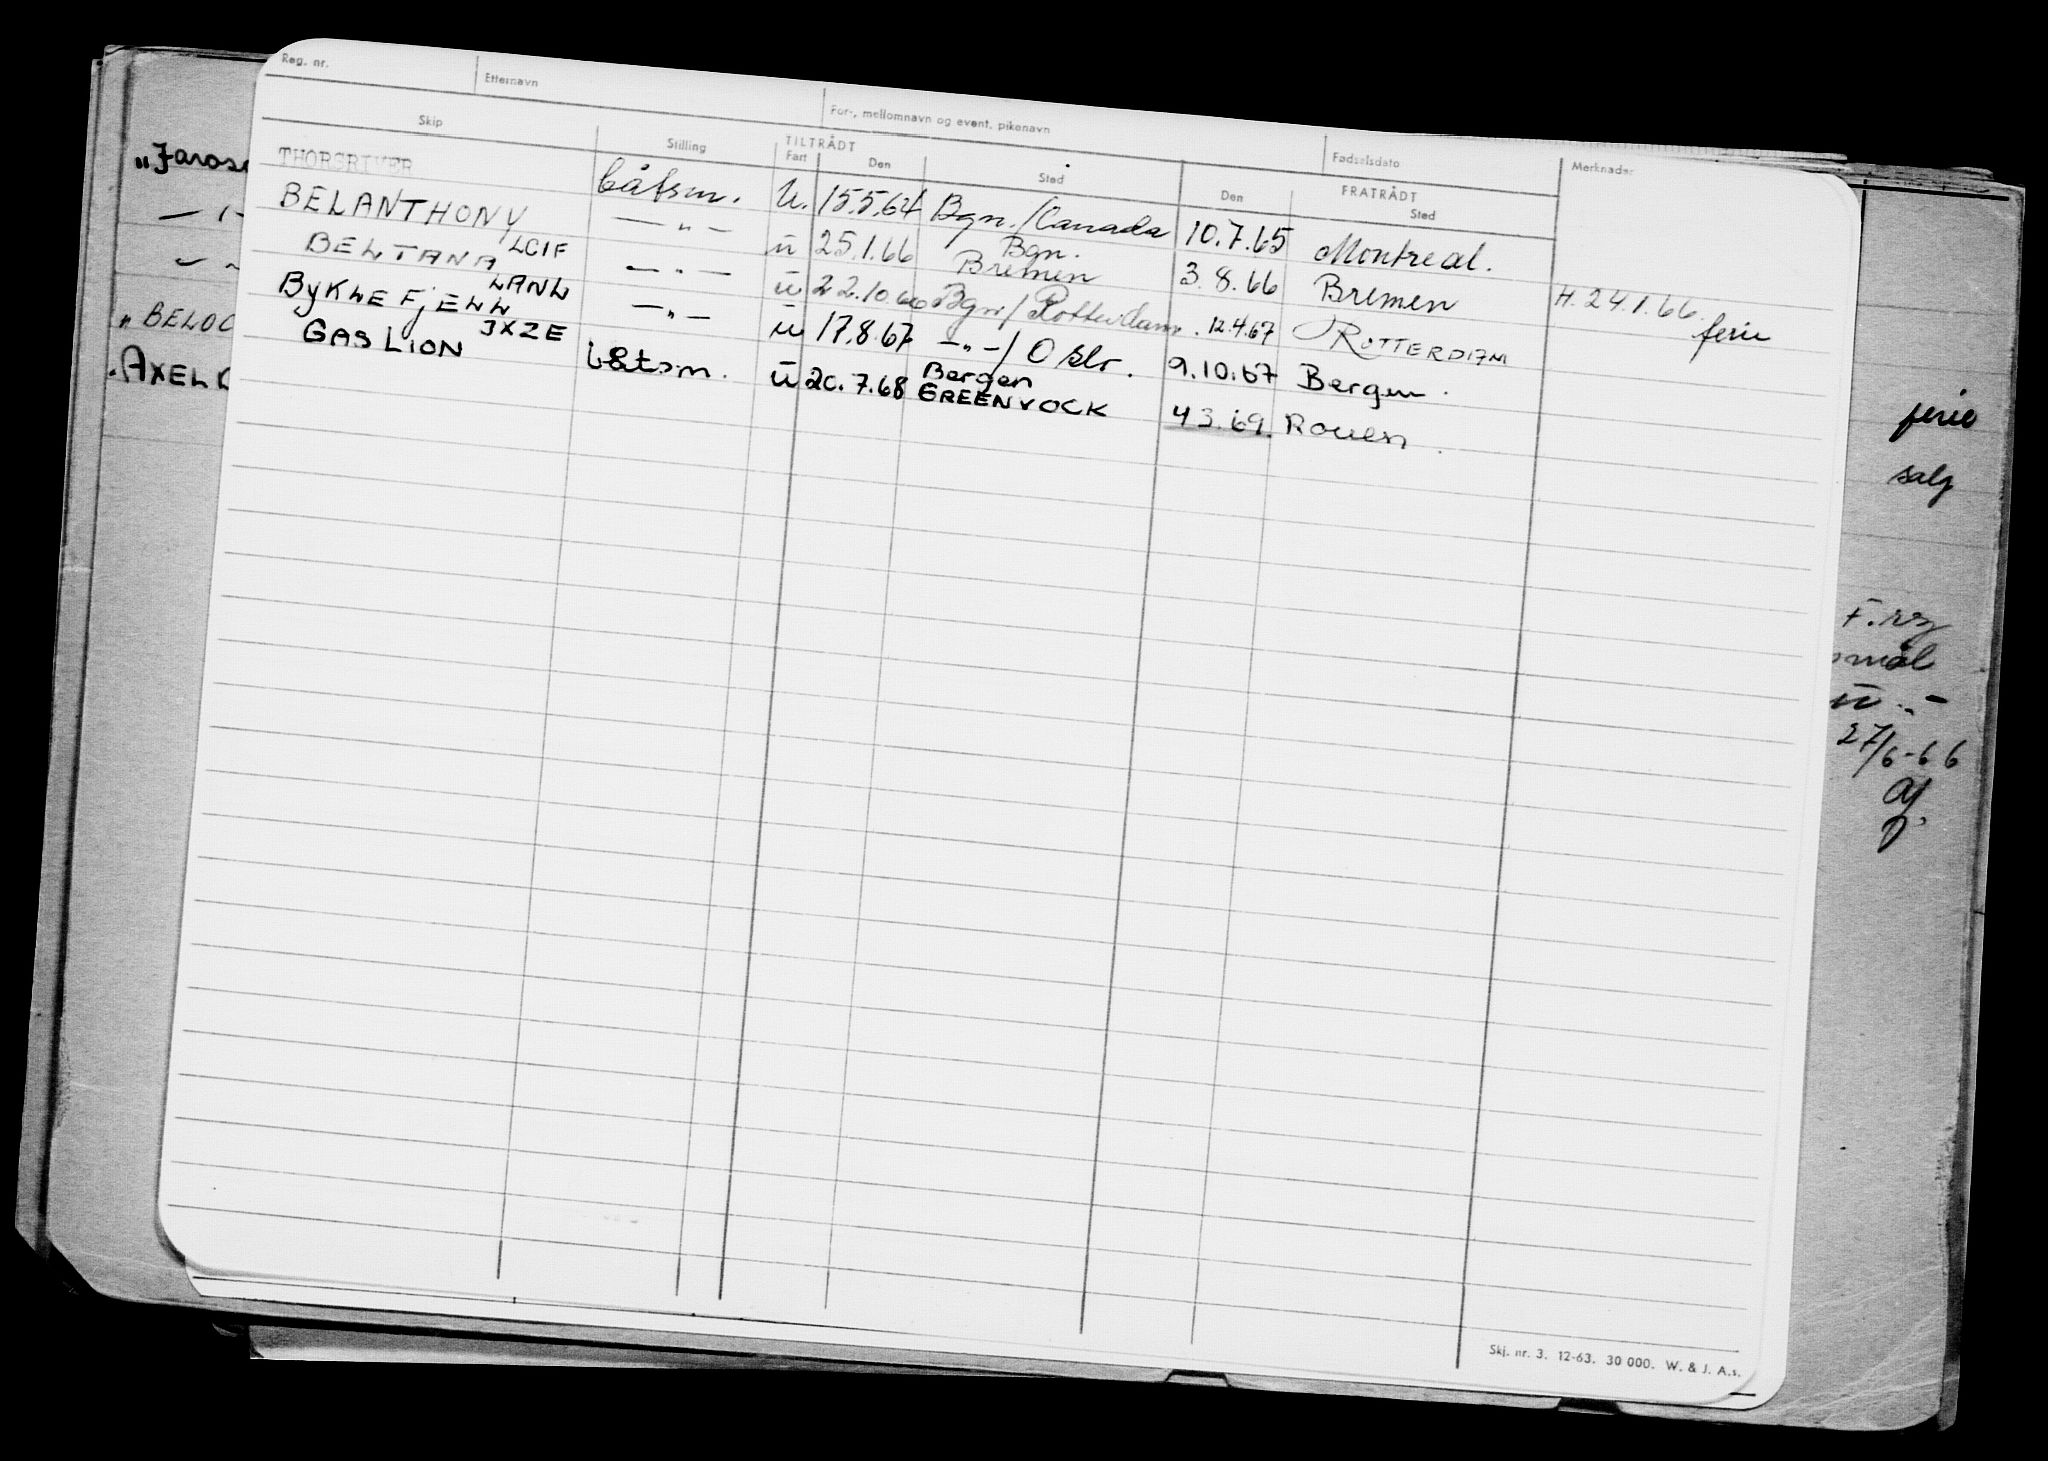 Reg. nr. Etternavn For-, mellomnavn og event. pikenavn Fødselsdato Merknader
Skip Stilling TILTRÅDT FRATRÅDT
Fart Den Sted Den Sted
THORSRIVER båtsm. U. 15.5.64 Bgn./Canada 10.7.65 Montreal.
BELANTHONY LCIF — " — ū 25.1.66 Bgn. Bremen 3.8.66 Bremen H. 24.1.66. ferie
BELTANA LANL — " — ū 22.10.66 Bgn/Rotterdam. 12.4.67 ROTTERDAM
ByKLEFjELL JXZE — " — ū 17.8.67 — " —/Oslo. 9.10.67 Bergen.
GAS LION båtsm. ū 20.7.68 Bergen GREENVOCK 4 3.69. Rouen.
"Jaros
— " —
"BELOC
AXEL
ferie
salg
F.
mål
ū " -
27/6-66
Skj. nr. 3. 12-63. 30 000. W. & J. A.s.